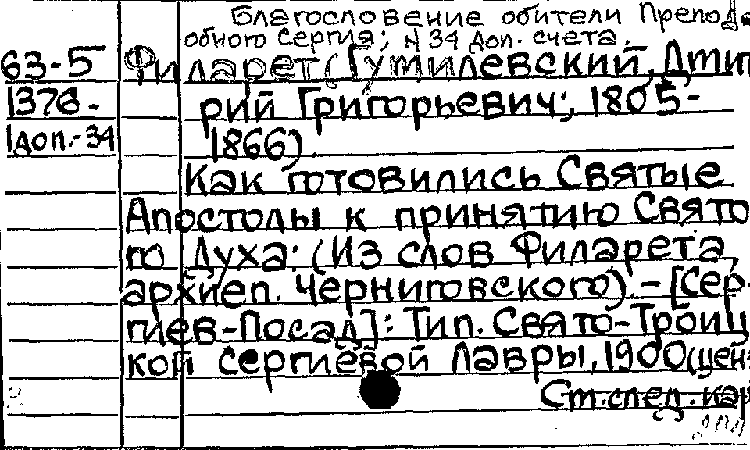 Благословение обители Препод
обного Сергия; № 34 доп. счета.
63-5 Филарет (Гумилевский, Дмит
1376- рий Григорьевич; 1805-
1доп.-34 1866).
Как готовились Святые
Апостолы к принятию Свято
го Духа: (Из слов Филарета,
архиеп. Черниговского). - [Сер-
гиев-Посад]: Тип. Свято-Троиц
кой Сергиевой Лавры, 1900 (цен
Ст. след. кар